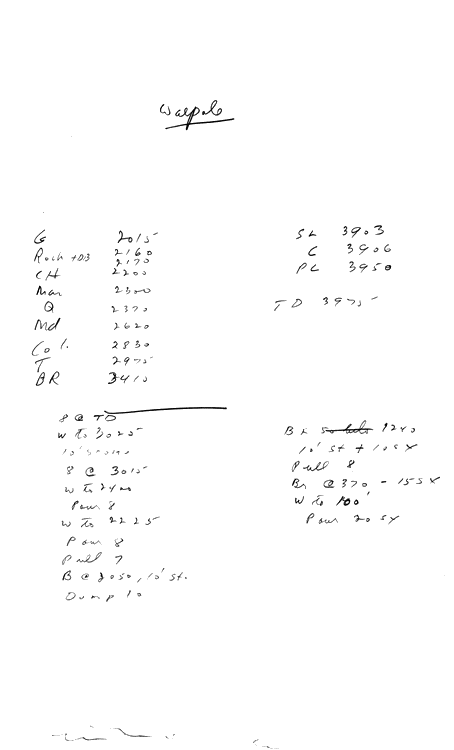 Walpole
G 2015
Roch + DB 2160
2170
CH 2200
Mar 2300
Q 2370
Md 2620
Col. 2830
T 2975
BR 3410
SL 3903
C 3906
PC 3950
TD 3975
8 @ TD
W to 3025
10' stone
8 @ 3015
W to 2400
Pour 8
W to 2225
Pour 8
Pull 7
B @ 2050, 10' st.
Dump 10
Br 1240
10' st + 10 sx
Pull 8
Br @ 370 - 15 sx
W to 100'
Pour 20 sx